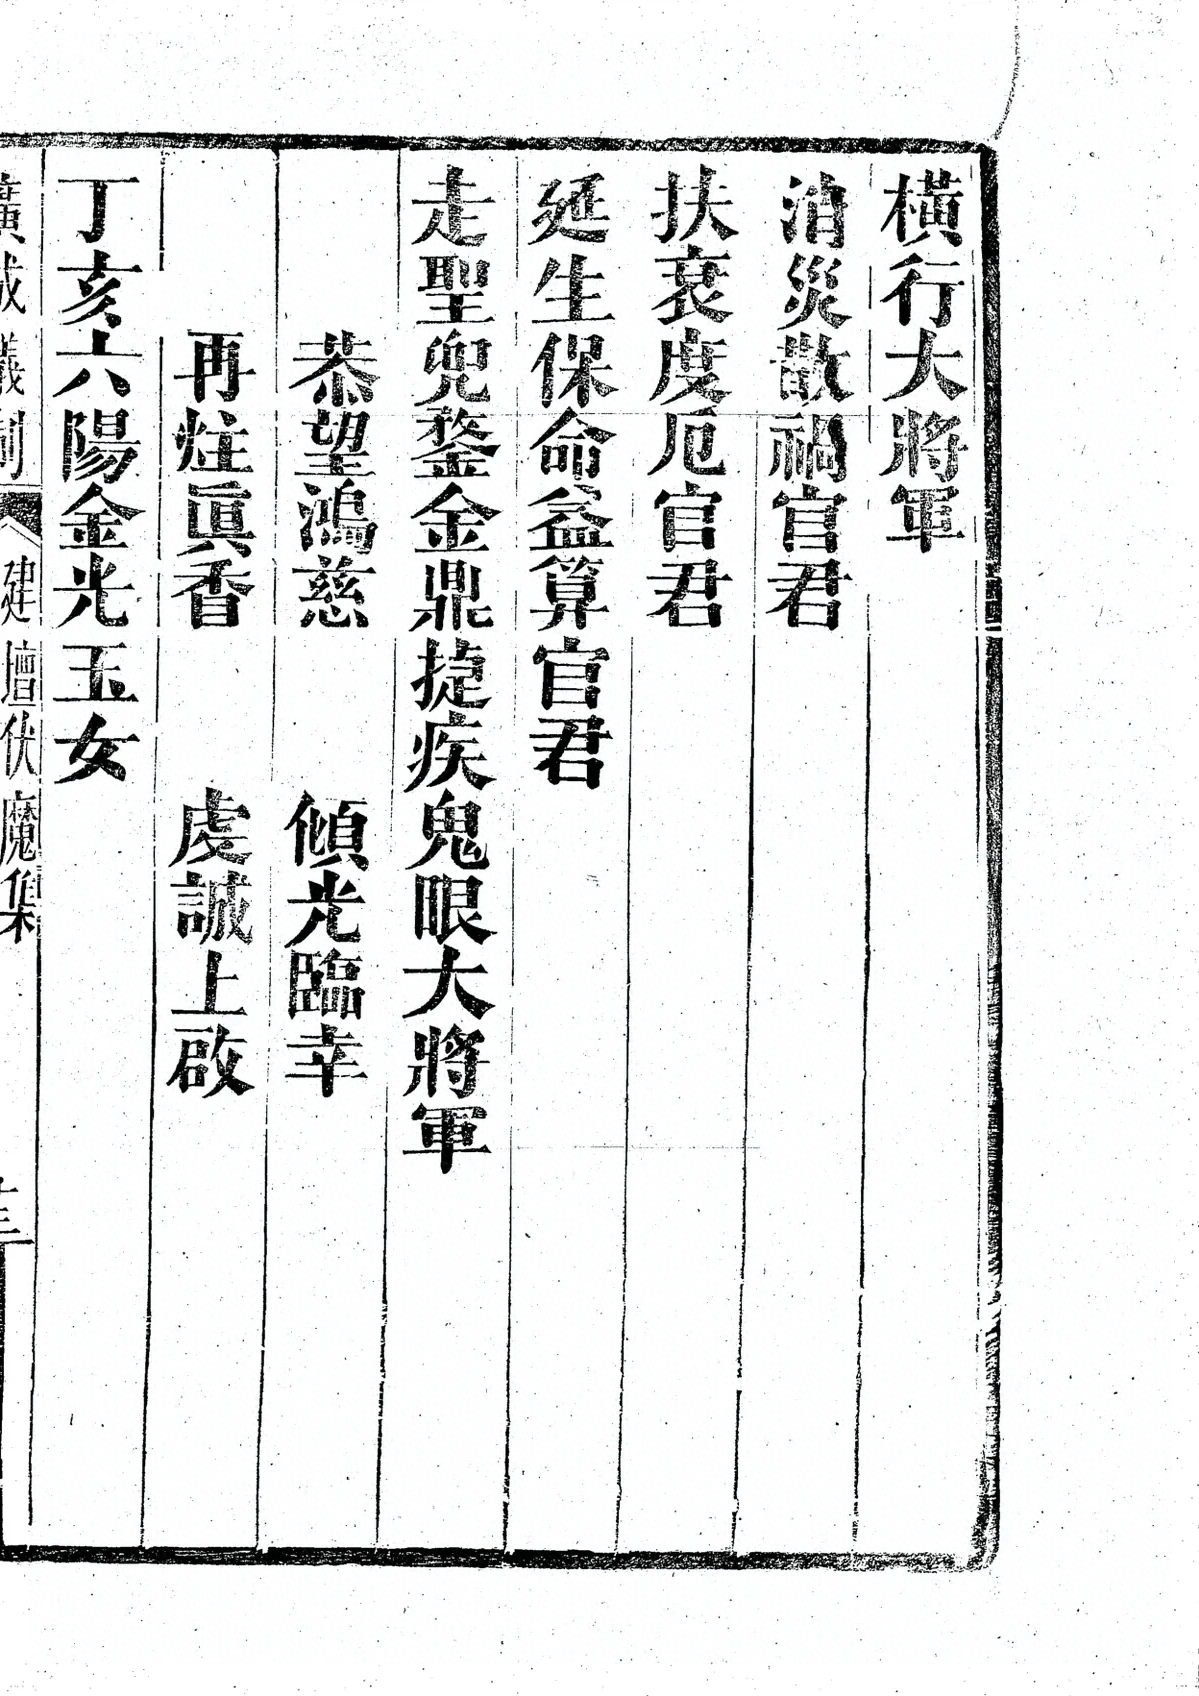 橫行大將軍
消災散禍官君
扶衰度厄官君
延生保命益算官君
走聖兜鍪金鼎捷疾鬼眼大將軍
恭望鴻慈　傾光臨幸
再炷眞香　虔誠上啟
丁亥六陽金光玉女
廣成儀制　建壇伏魔集